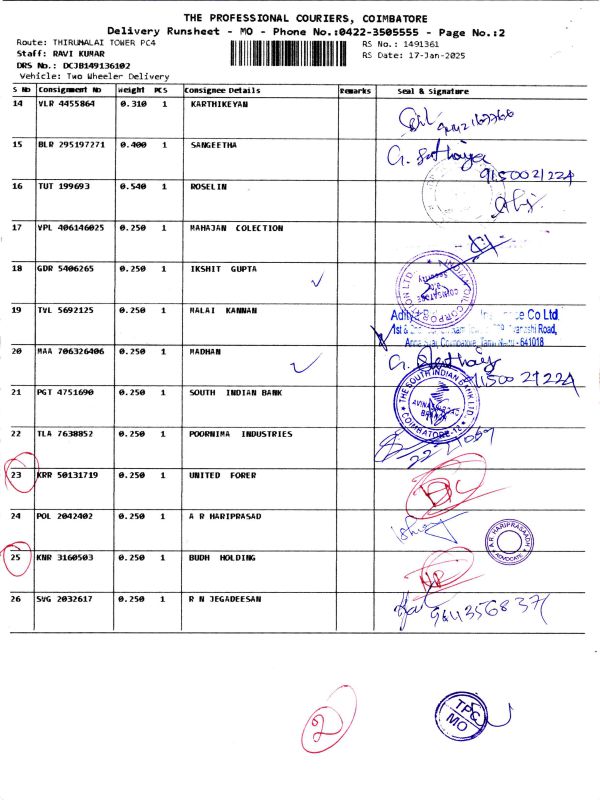 THE PROFESSIONAL COURIERS, COIMBATORE
Delivery Runsheet - MO - Phone No.:0422-3505555 - Page No.:2
Route: THIRUMALAI TOWER PC4
RS No.: 1491361
Staff: RAVI KUMAR
RS Date: 17-Jan-2025
DRS No.: DCJB149136102
Vehicle: Two Wheeler Delivery
S No Consignment No Weight PCS Consignee Details Remarks Seal & Signature
14 VLR 4455864 0.310 1 KARTHIKEYAN
15 BLR 295197271 0.400 1 SANGEETHA
9150021224
16 TUT 199693 0.540 1 ROSELIN
17 VPL 406146025 0.250 1 MAHAJAN COLECTION
18 GDR 5406265 0.250 1 IKSHIT GUPTA
INDIAN OIL CORPORATION LTD.
COIMBATORE
Security
19 TVL 5692125 0.250 1 MALAI KANNAN
Aditya
Co Ltd.
1st &
Road,
Coimbatore, Tamil Nadu - 641018
20 MAA 706326406 0.250 1 MADHAN
9150021224
21 PGT 4751690 0.250 1 SOUTH INDIAN BANK
THE SOUTH INDIAN BANK LTD.
BRANCH
COIMBATORE-18
22 TLA 7638852 0.250 1 POORNIMA INDUSTRIES
23 KRR 50131719 0.250 1 UNITED FORER
24 POL 2042402 0.250 1 A R HARIPRASAD
AR HARIPRASAADH
ADVOCATE
25 KNR 3160503 0.250 1 BUDH HOLDING
26 SVG 2032617 0.250 1 R N JEGADEESAN
2
TPC
MO